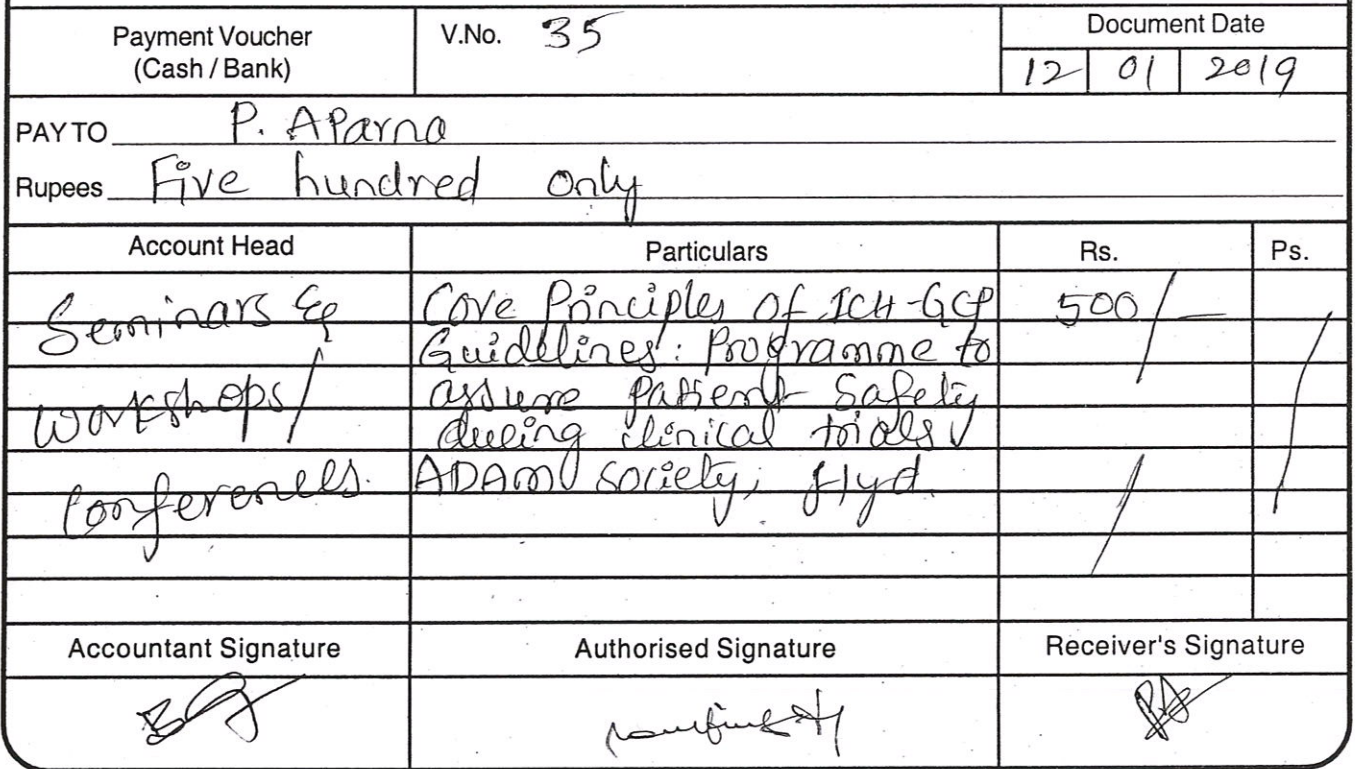 Payment Voucher
(Cash / Bank)
V.No. 35
Document Date
12 01 2019
PAY TO P. Aparna
Rupees Five hundred only
Account Head
Particulars
Rs.
Ps.
Seminars &
workshops/
conferences.
Core Principles of ICH-GCP
Guidelines: Programme to
assure Patient Safety
during clinical trials
ADAM society, Hyd.
500/-
Accountant Signature
Authorised Signature
Receiver's Signature